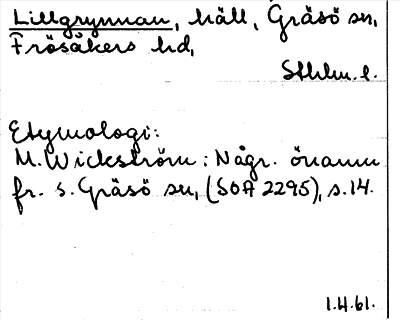 Lillgrynnan, häll, Gräsö sn,
Frösåkers hd,
Sthlm. l.
Etymologi:
M. Wickström: Någr. önamn
fr. s. Gräsö sn, (SOA 2295), s. 14.
I.H. 61.